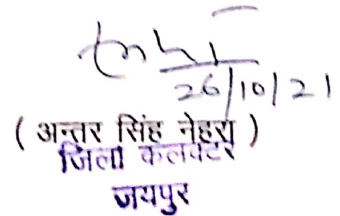 26/10/21
( अन्तर सिंह नेहरा )
जिला कलक्टर
जयपुर